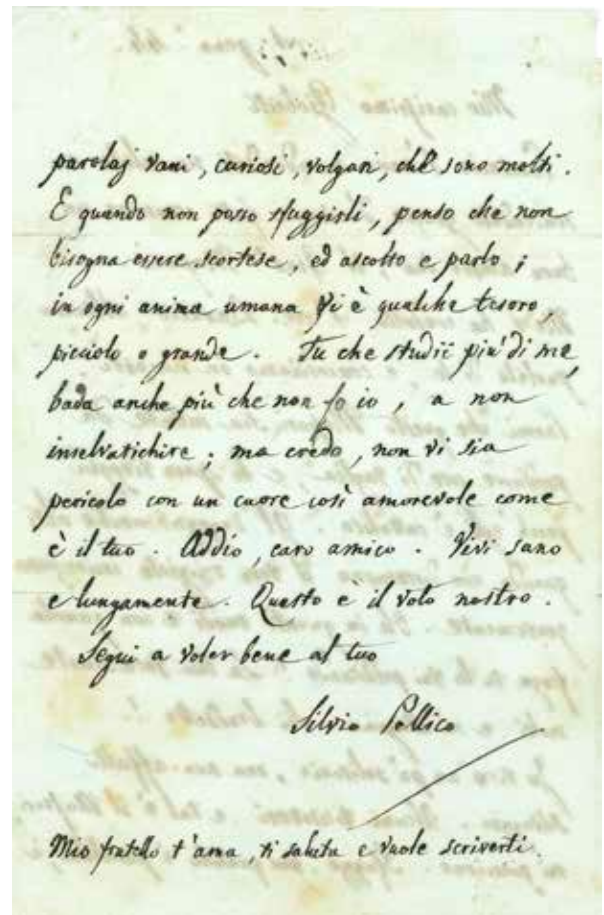 parolaj vani, curiosi, volgari, che sono molti.
E quando non posso sfuggirli, penso che non
bisogna essere scortese, ed ascolto e parlo;
in ogni anima umana vi è qualche tesoro,
picciolo o grande. Tu che studii più di me,
bada anche più che non fo io, a non
inselvatichire; ma credo, non vi sia
pericolo con un cuore così amorevole come
è il tuo. Addio, caro amico. Vivi sano
e lungamente. Questo è il voto nostro.
Segui a voler bene al tuo
Silvio Pellico
Mio fratello t'ama, ti saluta e vuole scriverti.